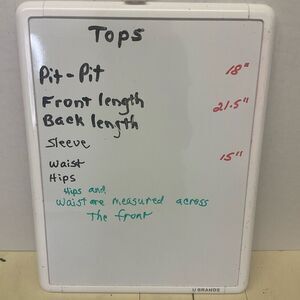 Tops
Pit-Pit 18"
Front length 21.5"
Back length
Sleeve
Waist 15"
Hips
Hips and
Waist are measured across
The front
U BRANDS